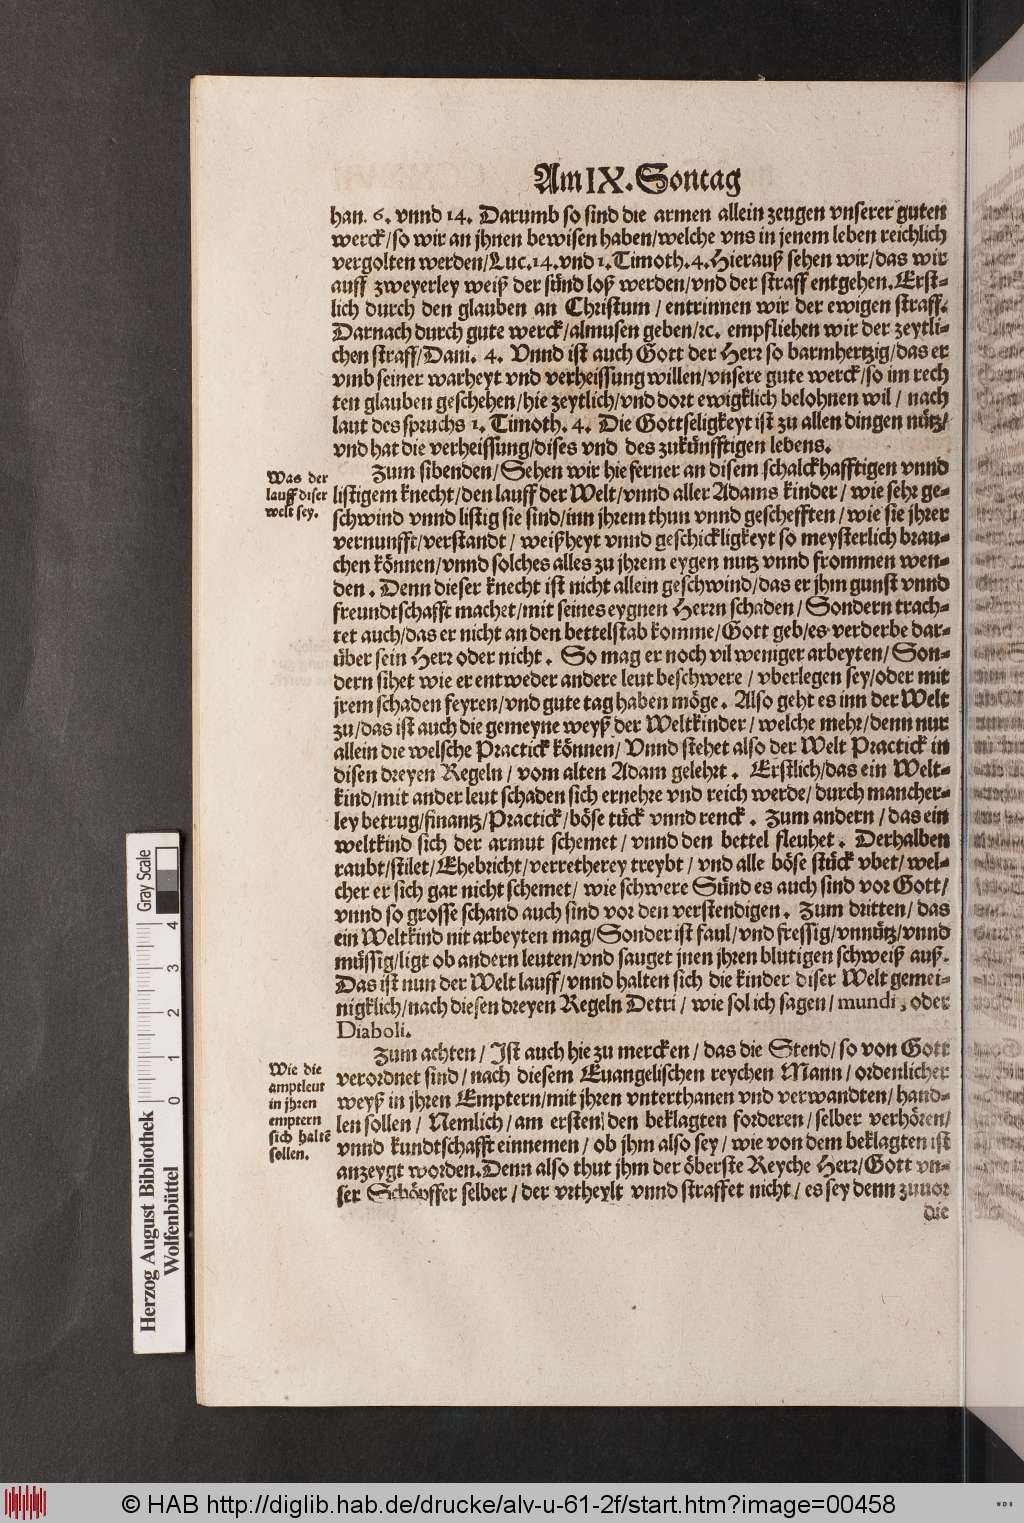 Am IX. Sontag
han. 6. vnnd 14. Darumb so sind die armen allein zeugen vnserer guten
werck/so wir an jhnen bewisen haben/welche vns in jenem leben reichlich
vergolten werden/Luc.14.vnd 1.Timoth.4.Hierauß sehen wir/das wir
auff zweyerley weiß der sünd loß werden/vnd der straff entgehen.Erst-
lich durch den glauben an Christum / entrinnen wir der ewigen straff.
Darnach durch gute werck/almusen geben/ꝛc. empfliehen wir der zeytli-
chen straff/Dani. 4. Vnnd ist auch Gott der Herr so barmhertzig/das er
vmb seiner warheyt vnd verheissung willen/vnsere gute werck/so im rech
ten glauben geschehen/hie zeytlich/vnd dort ewigklich belohnen wil / nach
laut des spruchs 1. Timoth. 4. Die Gottseligkeyt ist zu allen dingen nütz/
vnd hat die verheissung/dises vnd des zukünfftigen lebens.
Was der
lauff diser
welt sey.
Zum sibenden/Sehen wir hie ferner an disem schalckhafftigen vnnd
listigem knecht/den lauff der Welt/vnnd aller Adams kinder / wie sehr ge-
schwind vnnd listig sie sind/inn jhrem thun vnnd geschefften / wie sie jhrer
vernunfft/verstandt / weißheyt vnnd geschickligkeyt so meysterlich brau-
chen können/vnnd solches alles zu jhrem eygen nutz vnnd frommen wen-
den . Denn dieser knecht ist nicht allein geschwind/das er jhm gunst vnnd
freundtschafft machet/mit seines eygnen Herrn schaden / Sondern trach-
tet auch/das er nicht an den bettelstab komme/Gott geb/es verderbe dar-
über sein Herr oder nicht . So mag er noch vil weniger arbeyten/ Son-
dern sihet wie er entweder andere leut beschwere / vberlegen sey/oder mit
jrem schaden feyren/vnd gute tag haben möge . Also geht es inn der Welt
zu/das ist auch die gemeyne weyß der Weltkinder / welche mehr/denn nur
allein die welsche Practick können/ Vnnd stehet also der Welt Practick in
disen dreyen Regeln / vom alten Adam gelehrt . Erstlich/das ein Welt-
kind/mit ander leut schaden sich ernehre vnd reich werde/ durch mancher-
ley betrug/finantz/Practick/böse tück vnnd renck . Zum andern / das ein
weltkind sich der armut schemet / vnnd den bettel fleuhet . Derhalben
raubt/stilet/Ehebricht/verretherey treybt / vnd alle böse stück vbet/ wel-
cher er sich gar nicht schemet/ wie schwere Sünd es auch sind vor Gott/
vnnd so grosse schand auch sind vor den verstendigen . Zum dritten/ das
ein Weltkind nit arbeyten mag/Sonder ist faul/vnd fressig/vnnütz/vnnd
müssig/ligt ob andern leuten/vnd sauget jnen jhren blutigen schweiß auß.
Das ist nun der Welt lauff/vnnd halten sich die kinder diser Welt gemei-
nigklich/nach diesen dreyen Regeln Detri / wie sol ich sagen / mundi , oder
Diaboli.
Wie die
amptleut
in jhren
emptern
sich haltē
sollen.
Zum achten / Ist auch hie zu mercken / das die Stend/ so von Gott
verordnet sind/ nach diesem Euangelischen reychen Mann/ ordenlicher
weyß in jhren Emptern/mit jhren vnterthanen vnd verwandten/ hand-
len sollen / Nemlich/ am ersten/ den beklagten forderen / selber verhören/
vnnd kundtschafft einnemen / ob jhm also sey / wie von dem beklagten ist
anzeygt worden.Denn also thut jhm der öberste Reyche Herr/Gott vn-
ser Schöpffer selber / der vrtheylt vnnd straffet nicht / es sey denn zuuor
die
Gray Scale
4
3
2
1
0
Herzog August Bibliothek
Wolfenbüttel
© HAB http://diglib.hab.de/drucke/alv-u-61-2f/start.htm?image=00458